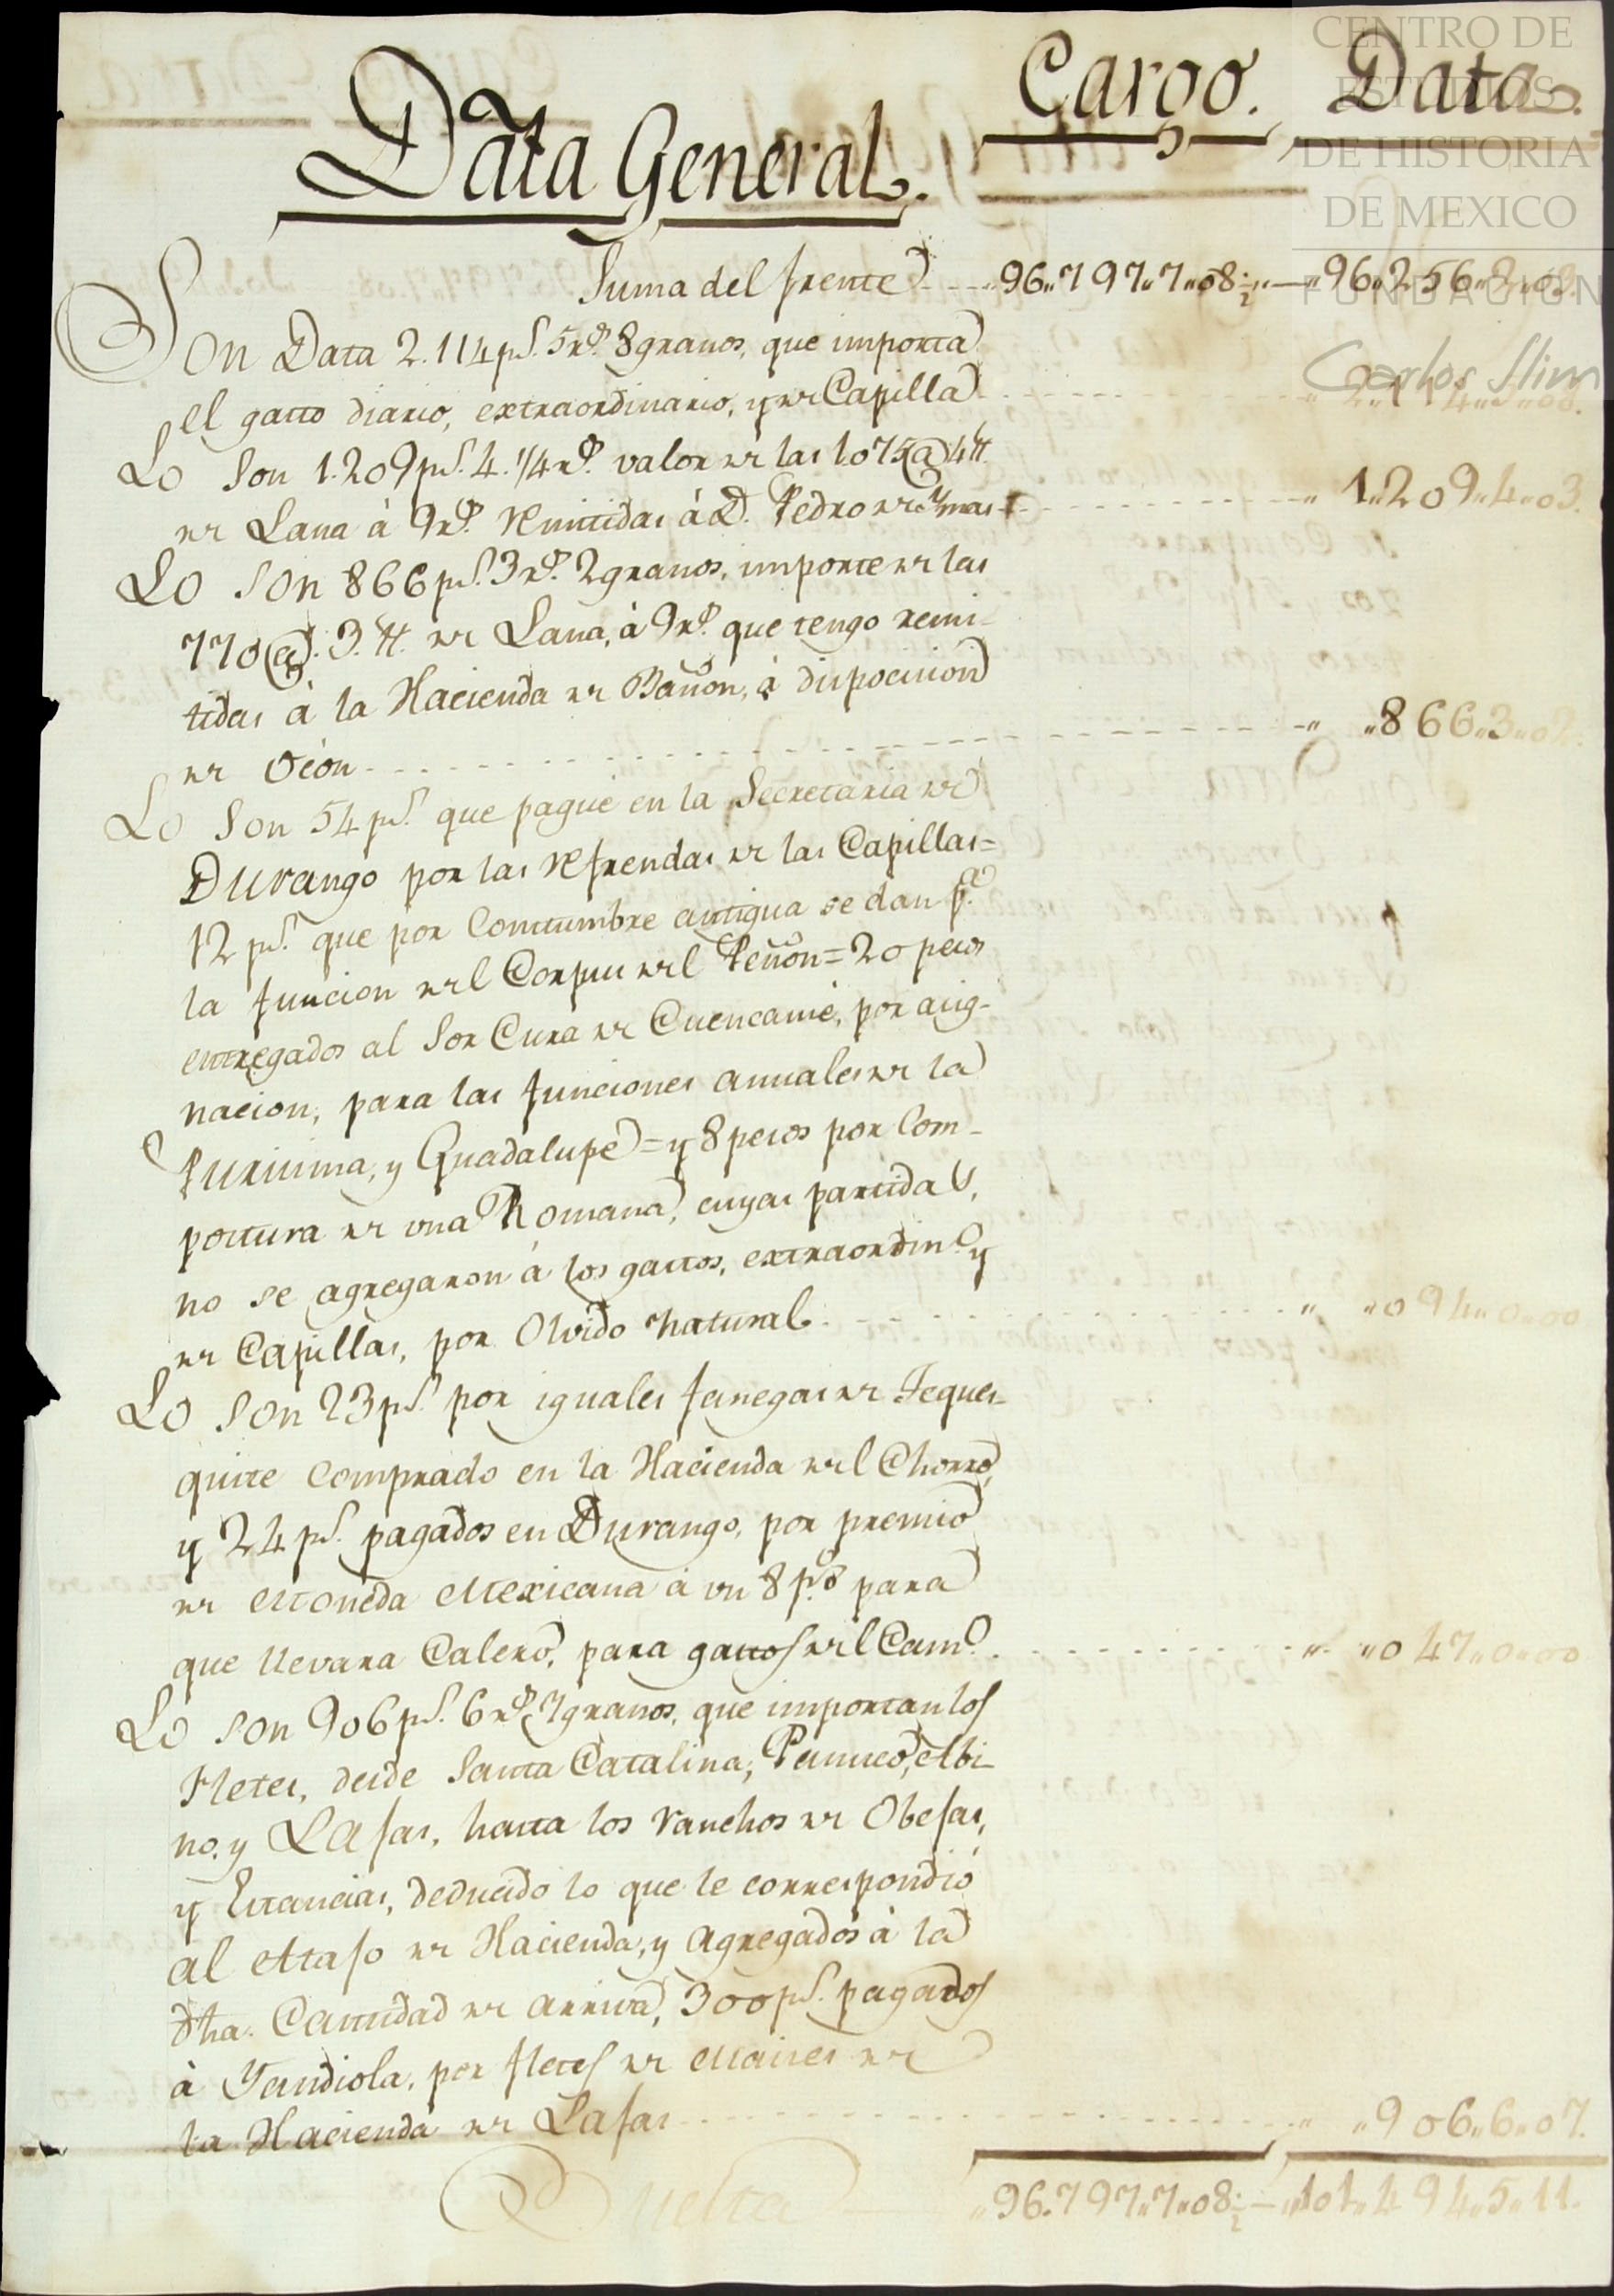 Cargo. Data.
Data General.
Suma del frente 96,,797,,7,,08½ 96,,256,,2,,02.
Son Data 2.114 ps. 5 rs. 8 granos, que importa
el gasto diario, extraordinario, y de Capilla 2,,114,,5,,08.
Lo Son 1.209 ps. 4.1/4 rs. valor de las 1075 @ 4 tt.
de Lana à 9 rs. remitidas á D. Pedro de Ymas 1,,209,,4,,03.
Lo Son 866 ps. 3 rs. 2 granos, importe de las
770 @. 3. tt. de Lana, à 9 rs. que tengo remi-
tidas à la Hacienda de Bañon, à disposicion
de Ocòn ,,866,,3,,02.
Lo Son 54 ps. que pague en la Secretaria de
Durango por las refrendas de las Capillas=
12 ps. que por Constumbre antigua se dan pa.
la funcion del Corpus del Peñon = 20 pesos
entregados al Sor Cura de Cuencamè, por asig-
nacion, para las funciones anuales de la
Purisima, y Guadalupe = y 8 pesos por Com-
postura de una Romana, cuyas partidas,
no se agregaron à los gastos, extraordins. y
de Capillas, por Olvido natural ,,094,,0,,00
Lo Son 23 ps. por iguales fanegas de Teques-
quite comprado en la Hacienda del Chorro,
y 24 ps. pagados en Durango, por premio
de Moneda Mexicana à un 8 p% para
que llevara Calero, para gastos del Camo. ,,047,,0,,00
Lo Son 906 ps. 6 rs. 7 granos, que importan los
Fletes, desde Santa Catalina, Panuco, Albi-
no, y Lasas, hasta los ranchos de Obejas,
y Estancias, deducido lo que le correspondiò
al Atajo de Hacienda, y agregados à la
dha. Cantidad de arriva, 300 ps. pagados
à Yandiola, por fletes de Maises de
la Hacienda de Lasas ,,906,,6,,07.
96.797,,7,,08½ 101,,494,,5,,11.
Vuelta
CENTRO DE
ESTUDIOS
DE HISTORIA
DE MEXICO
FUNDACION
Carlos Slim